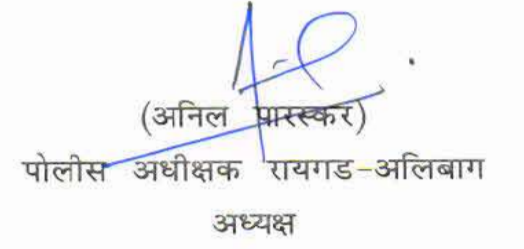 (अनिल पारस्कर)
पोलीस अधीक्षक रायगड-अलिबाग
अध्यक्ष